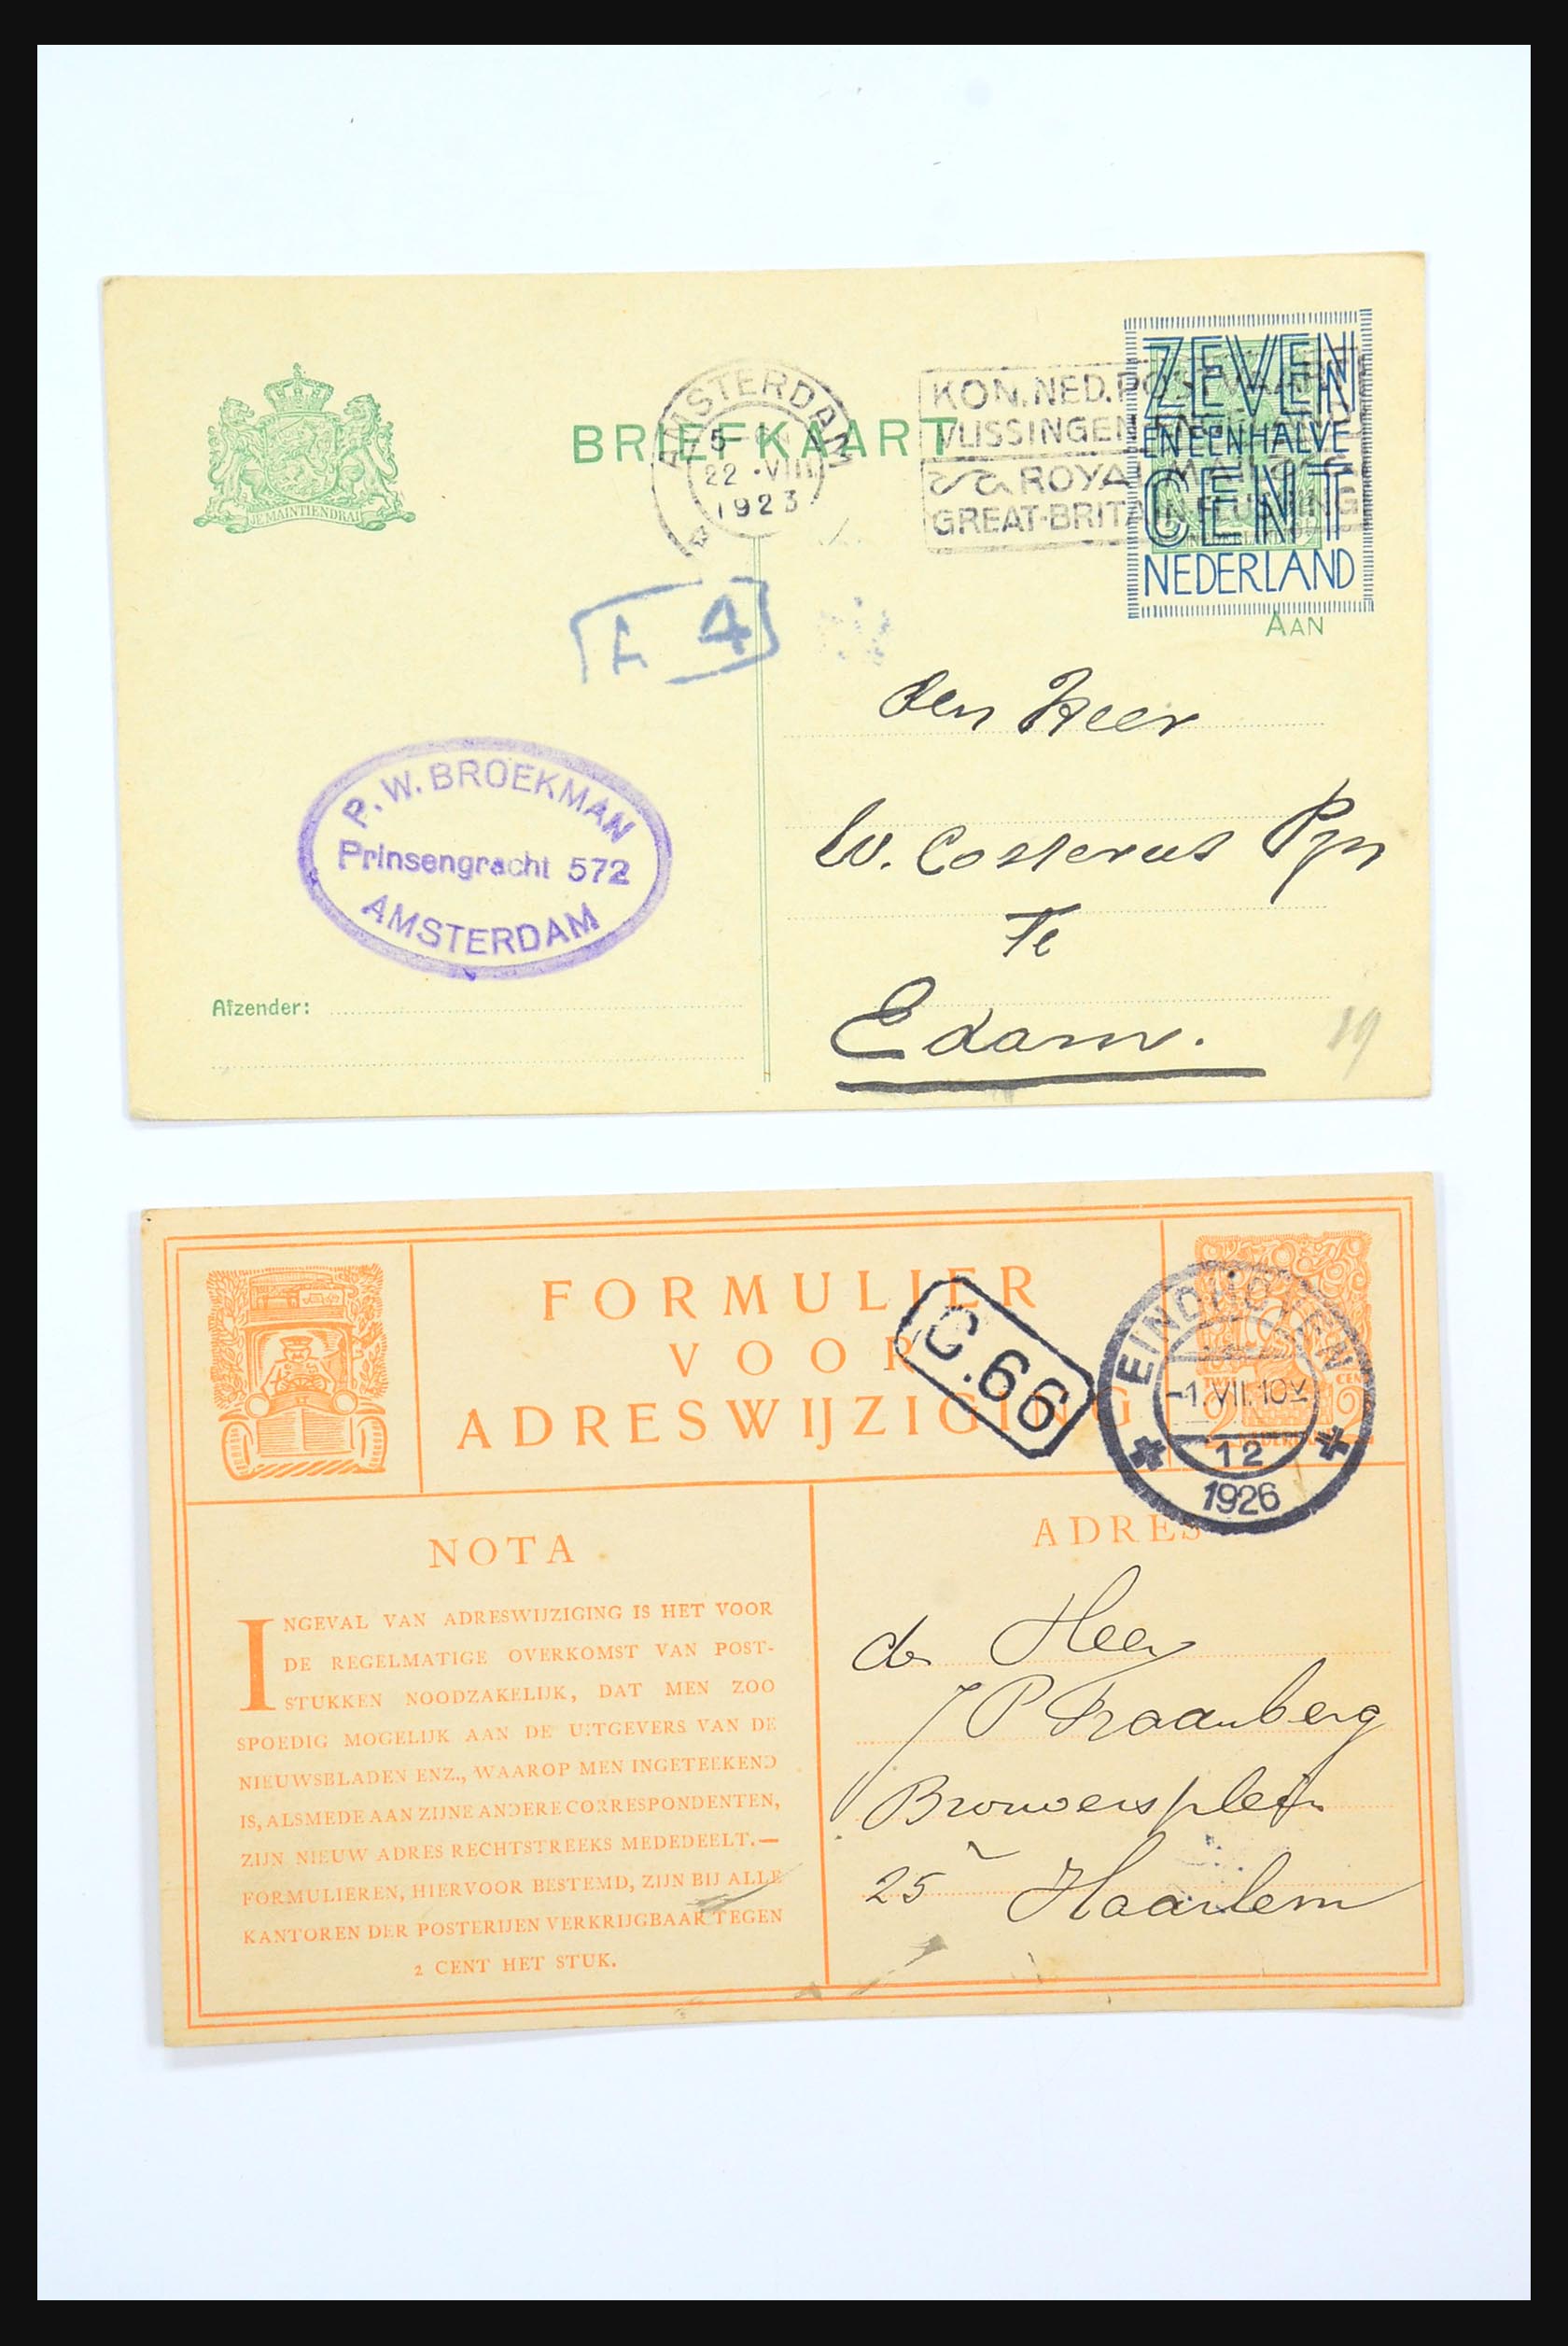 JE MAINTIENDRAI
BRIEFKAART
AMSTERDAM
5
22 .VIII
1923
KON. NED. POSTVAART
VLISSINGEN
ROYAL MAIL
GREAT-BRITAIN-FLUSHING
ZEVEN
EN EEN HALVE
CENT
NEDERLAND
AAN
A 4
den Heer
W. Costerus Pzn
Te
Edam.
P. W. BROEKMAN
Prinsengracht 572
AMSTERDAM
Afzender:
19
FORMULIER
VOOR
ADRESWIJZIGING
C.66
EINDHOVEN
-1.VII.10V
12
1926
TWEE CENT
2 2
NEDERLAND
NOTA
INGEVAL VAN ADRESWIJZIGING IS HET VOOR
DE REGELMATIGE OVERKOMST VAN POST-
STUKKEN NOODZAKELIJK, DAT MEN ZOO
SPOEDIG MOGELIJK AAN DE UITGEVERS VAN DE
NIEUWSBLADEN ENZ., WAAROP MEN INGETEEKEND
IS, ALSMEDE AAN ZIJNE ANDERE CORRESPONDENTEN,
ZIJN NIEUW ADRES RECHTSTREEKS MEDEDEELT.—
FORMULIEREN, HIERVOOR BESTEMD, ZIJN BIJ ALLE
KANTOREN DER POSTERIJEN VERKRIJGBAAR TEGEN
2 CENT HET STUK.
ADRES
de Heer
J P Kraanberg
Brouwersplein
25 Haarlem